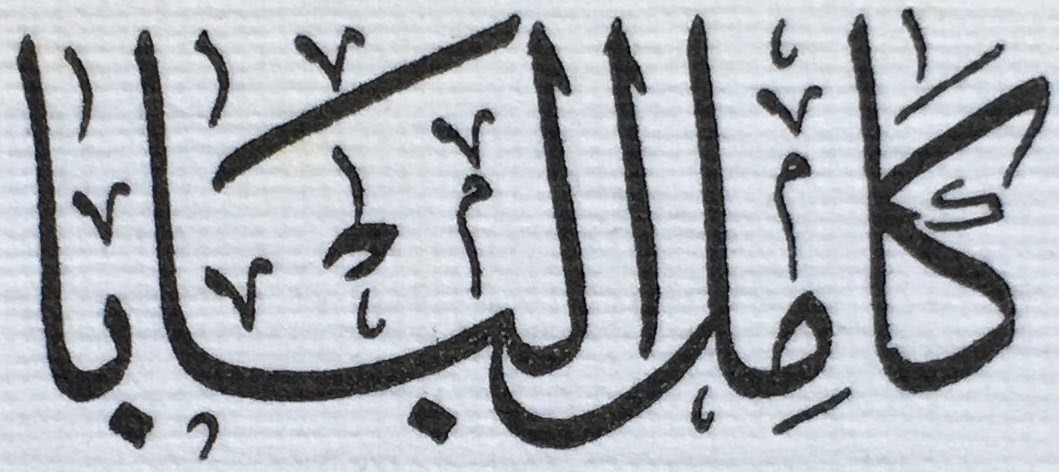 كامل البابا